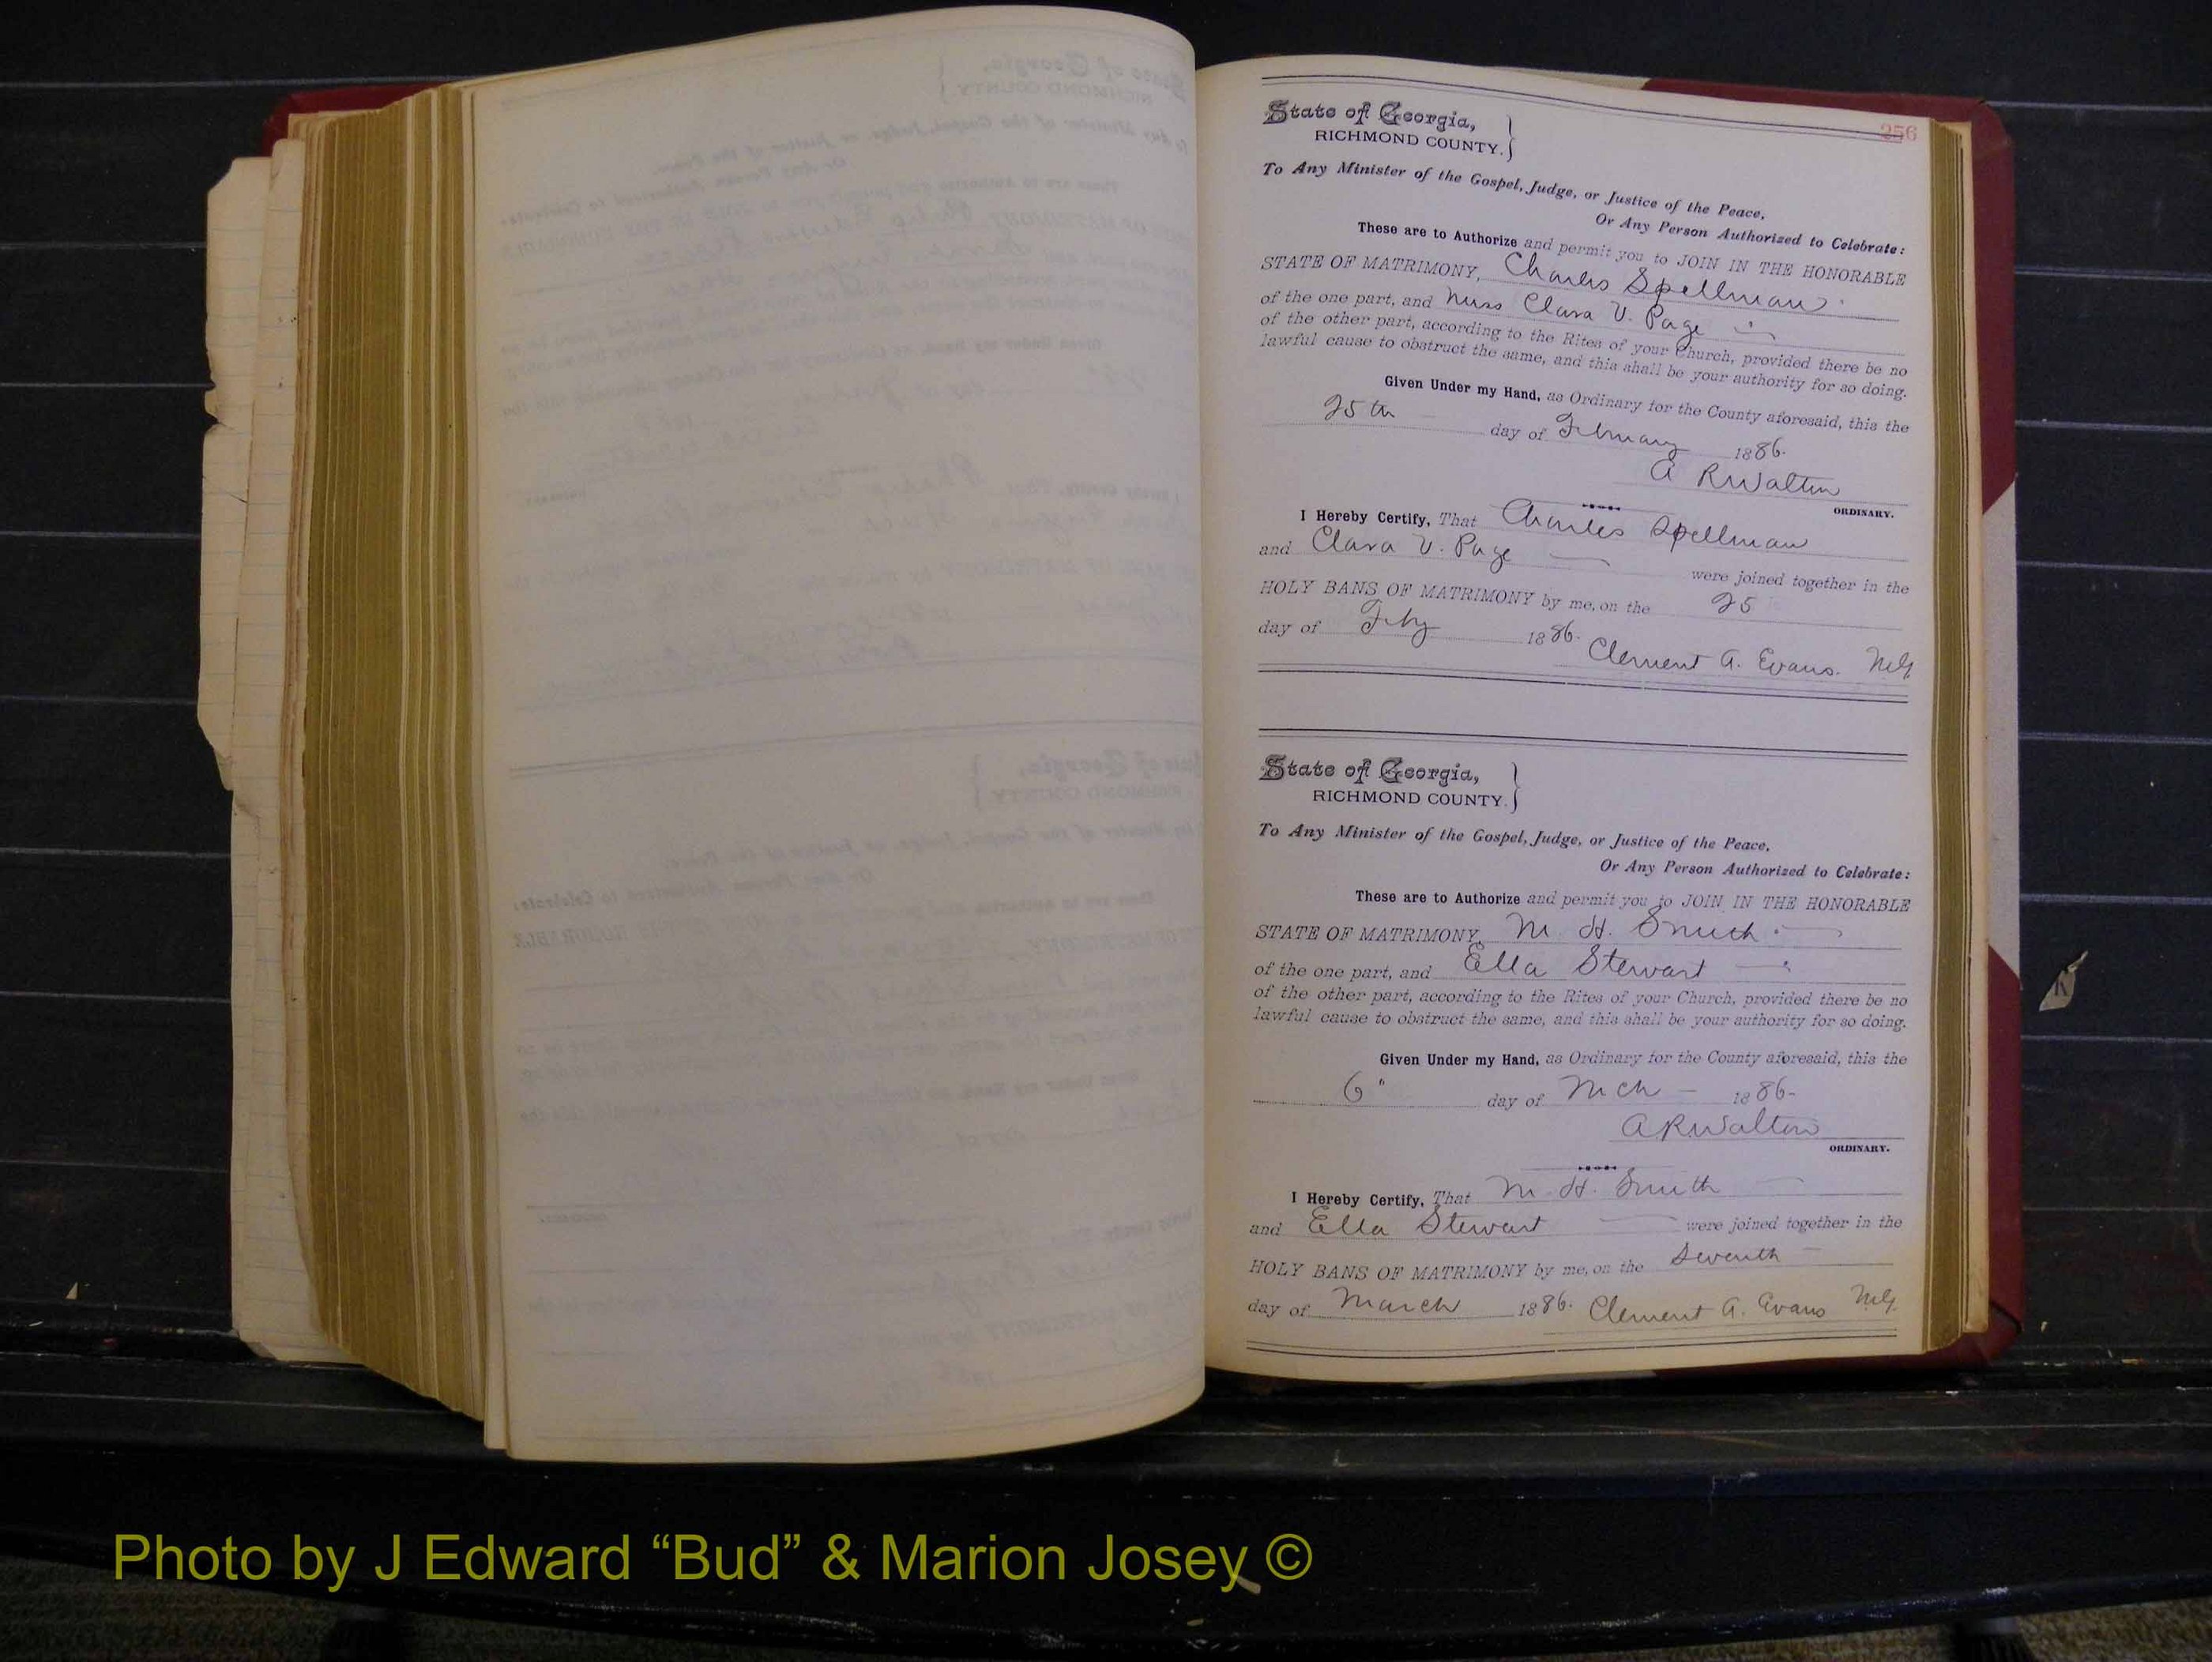 256
State of Georgia,
RICHMOND COUNTY.
To Any Minister of the Gospel, Judge, or Justice of the Peace,
Or Any Person Authorized to Celebrate:
These are to Authorize and permit you to JOIN IN THE HONORABLE
STATE OF MATRIMONY, Charles Spellman
of the one part, and Miss Clara V. Page
of the other part, according to the Rites of your Church, provided there be no
lawful cause to obstruct the same, and this shall be your authority for so doing.
Given Under my Hand, as Ordinary for the County aforesaid, this the
25th day of February 1886.
A R Walton
ORDINARY.
I Hereby Certify, That Charles Spellman
and Clara V. Page were joined together in the
HOLY BANS OF MATRIMONY by me, on the 25
day of Feby 1886.
Clement A. Evans. MG.
State of Georgia,
RICHMOND COUNTY.
To Any Minister of the Gospel, Judge, or Justice of the Peace,
Or Any Person Authorized to Celebrate:
These are to Authorize and permit you to JOIN IN THE HONORABLE
STATE OF MATRIMONY, M. H. Smith
of the one part, and Ella Stewart
of the other part, according to the Rites of your Church, provided there be no
lawful cause to obstruct the same, and this shall be your authority for so doing.
Given Under my Hand, as Ordinary for the County aforesaid, this the
6" day of Mch 1886
A R Walton
ORDINARY.
I Hereby Certify, That M. H. Smith
and Ella Stewart were joined together in the
HOLY BANS OF MATRIMONY by me, on the Seventh
day of March 1886. Clement A. Evans MG.
Photo by J Edward “Bud” & Marion Josey ©